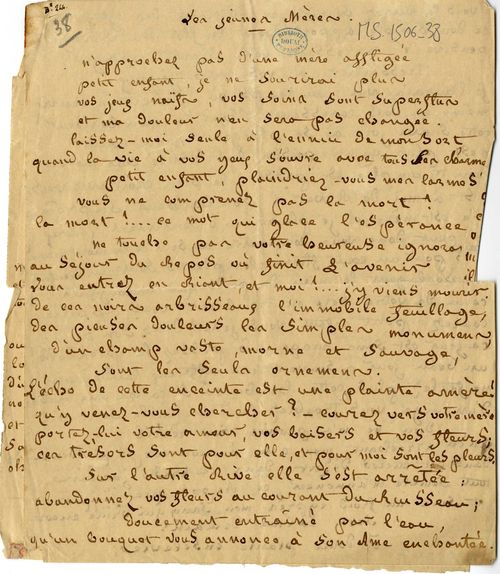 Bc 24.
38
Les jeunes Mères.
MS-1506-38
BIBLIOTH
DOUAI
n'approchez pas d'une mère affligée
petit enfant, je ne sourirai plus
vos jeux naïfs, vos soins sont superflus
et ma douleur n'en sera pas changée.
laissez-moi seule à l'ennui de mon sort
quand la vie à vos yeux s'ouvre avec tous ses charmes
petit enfant, plaindriez-vous mes larmes
vous ne comprenez pas la mort!
la mort!.... ce mot qui glace l'espérance
ne touche pas votre heureuse ignoran
au séjour du repos où finit l'avenir
vous entrez en riant, et moi!.... j'y viens mourir
de ces noirs arbrisseaux l'immobile feuillage,
des pieuses douleurs les simples monumens
d'un champ vaste, morne et sauvage,
sont les seuls ornemens.
L'écho de cette enceinte est une plainte amère
qu'y venez-vous chercher? - courez vers votre mère
portez-lui votre amour, vos baisers et vos fleurs;
ces trésors sont pour elle, et pour moi sont les pleurs.
sur l'autre rive elle s'est arrêtée;
abandonnez vos fleurs au courant du ruisseau;
doucement entraîné par l'eau,
qu'un bouquet vous annonce à son âme enchantée.